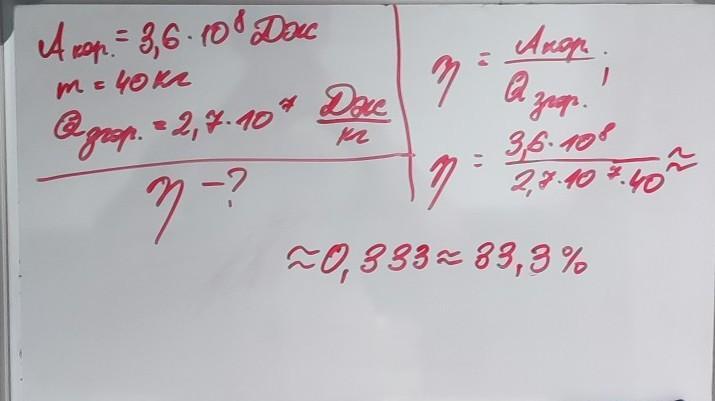 Aкор. = 3,6 · 10⁸ Дж
m = 40 кг
Qзгор. = 2,7 · 10⁷ Дж/кг
η – ?
η = Aкор. / Qзгор. ;
η = 3,6 · 10⁸ / 2,7 · 10⁷ · 40 ≈
≈ 0,333 ≈ 33,3 %